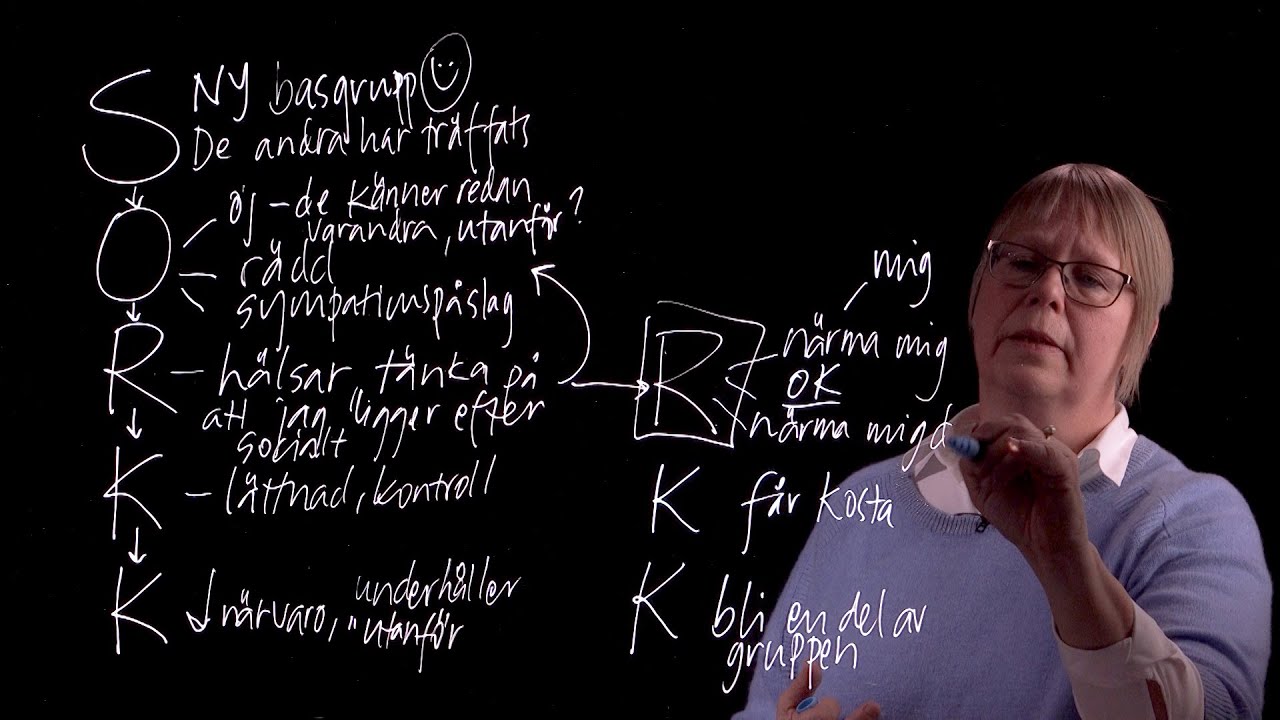 S NY basgrupp
De andra har träffats
O öj - de känner redan
varandra, utanför?
rädd
sympatimspåslag
R - hälsar, tänka på
att jag "ligger efter
socialt
K - lättnad, kontroll
K ↓ närvaro, underhåller
"utanför
mig
R närma mig
OK
närma mig d
K får kosta
K bli en del av
gruppen